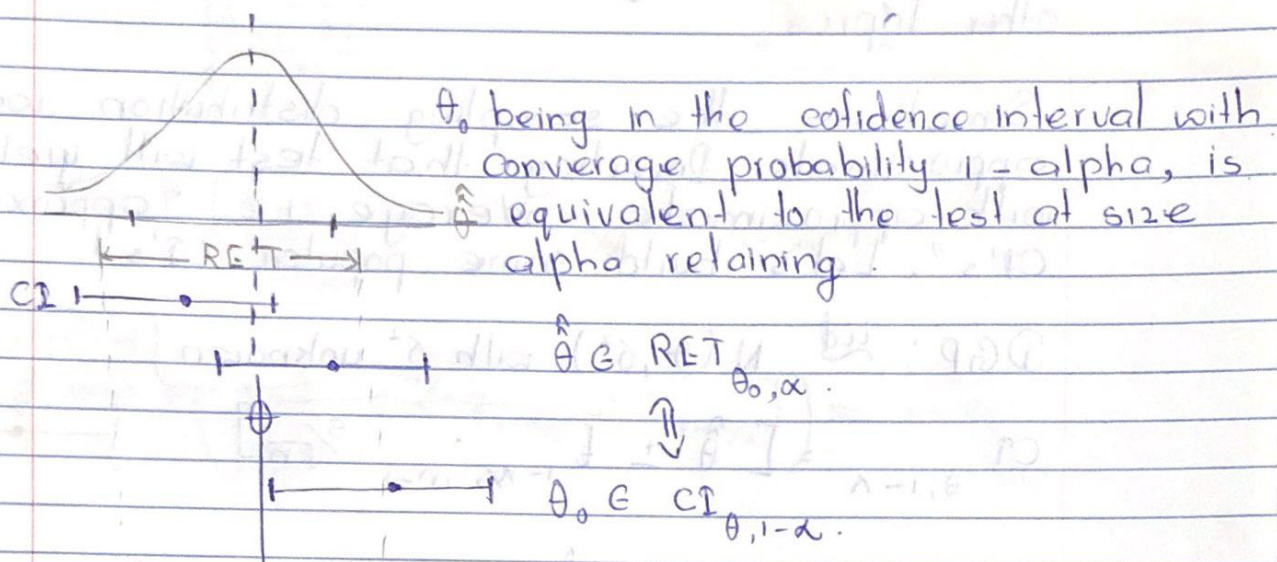 θ₀ being in the cofidence interval with
converage probability 1 - alpha, is
θ̂ equivalent to the test at size
RET alpha retaining.
CI
θ̂ ∈ RET θ₀,α.
⇕
θ₀ ∈ CI θ,1-α.